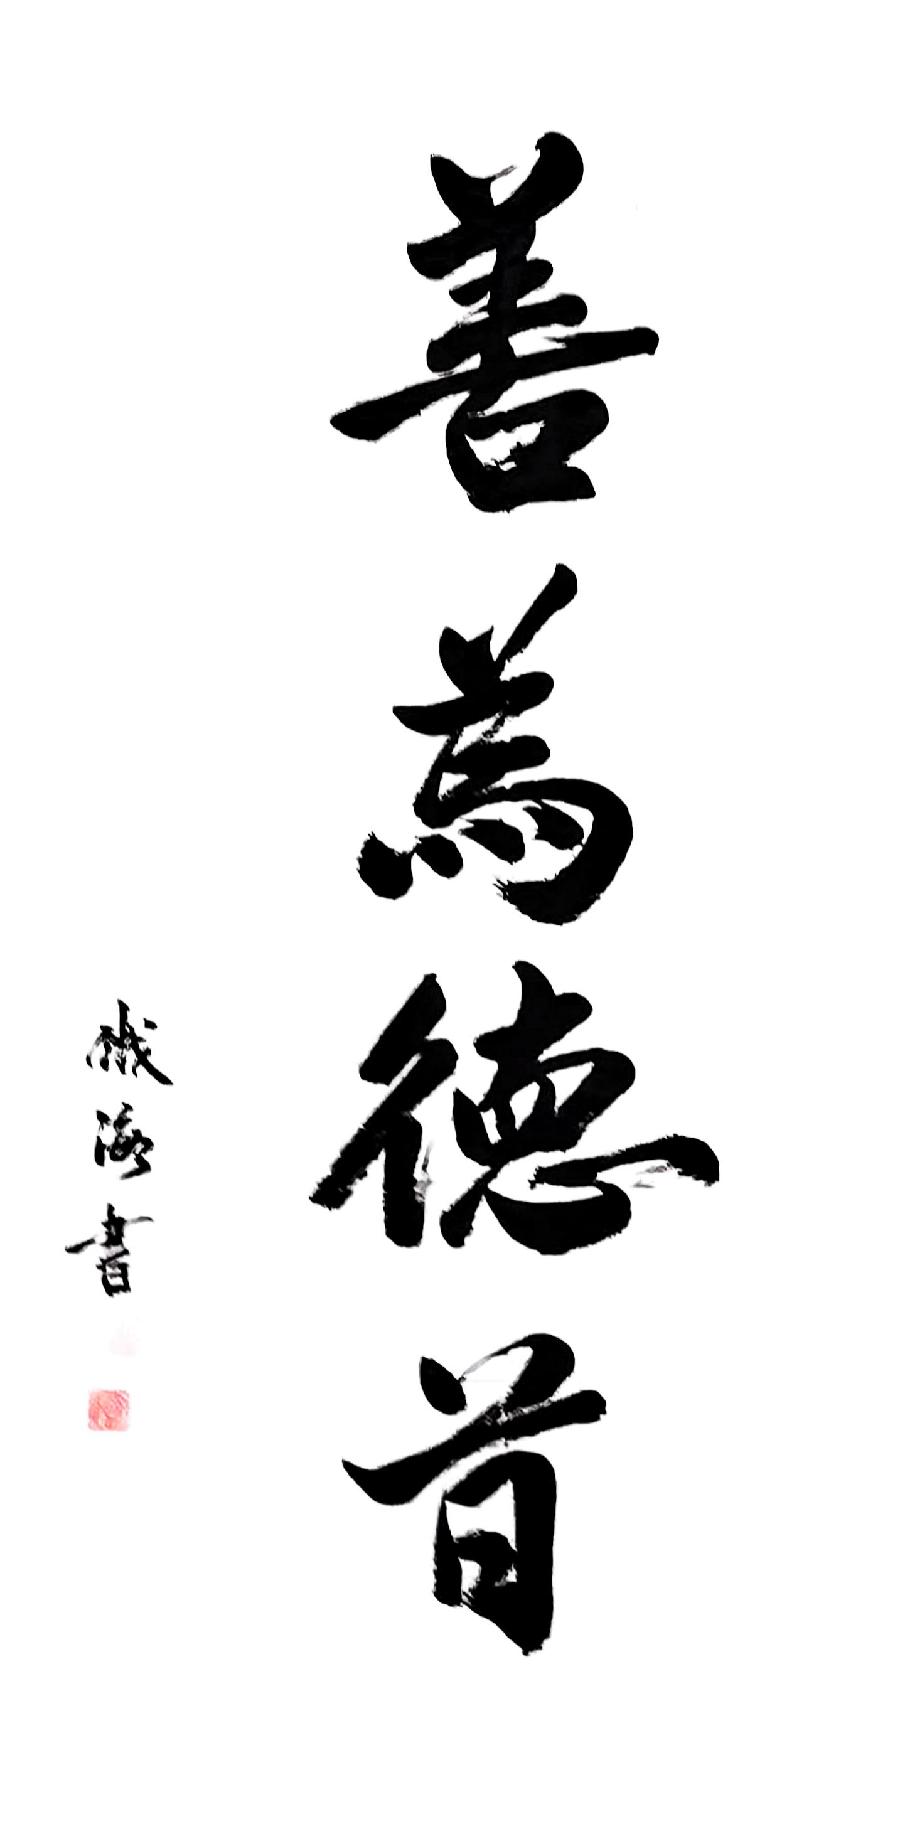 善為德首
海書